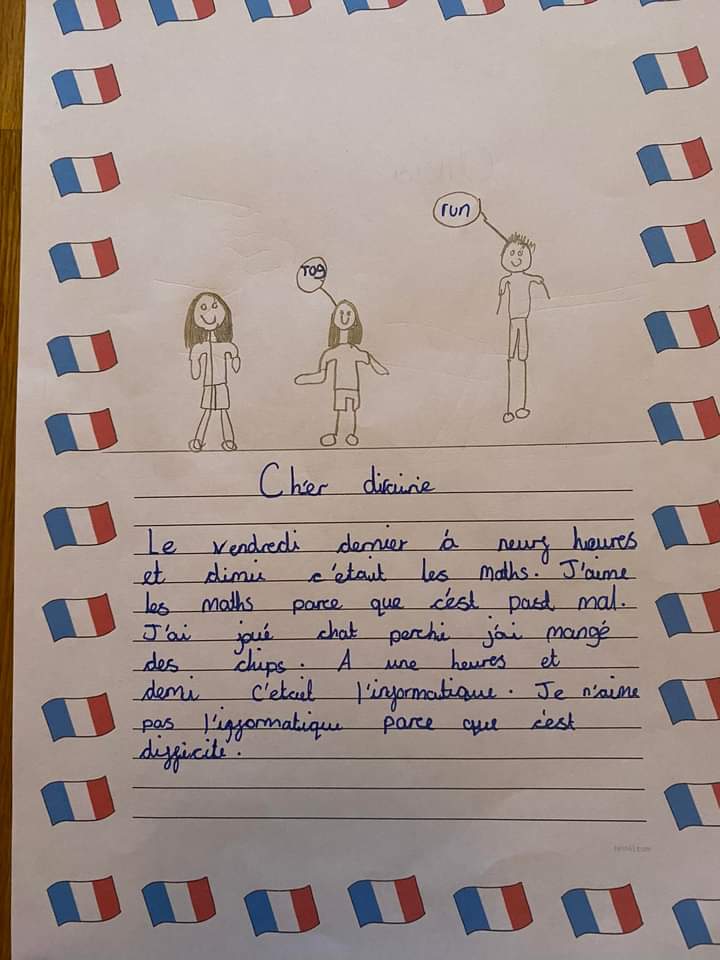 run
Tag
Cher diraire
Le vendredi dernier à neuf heures
et dimie c'etait les maths. J'aime
les maths parce que c'est past mal.
J'ai joué chat perchi j'ai mangé
des chips. A une heures et
demi c'etait l'informatique. Je n'aime
pas l'informatique parce que c'est
difficité.